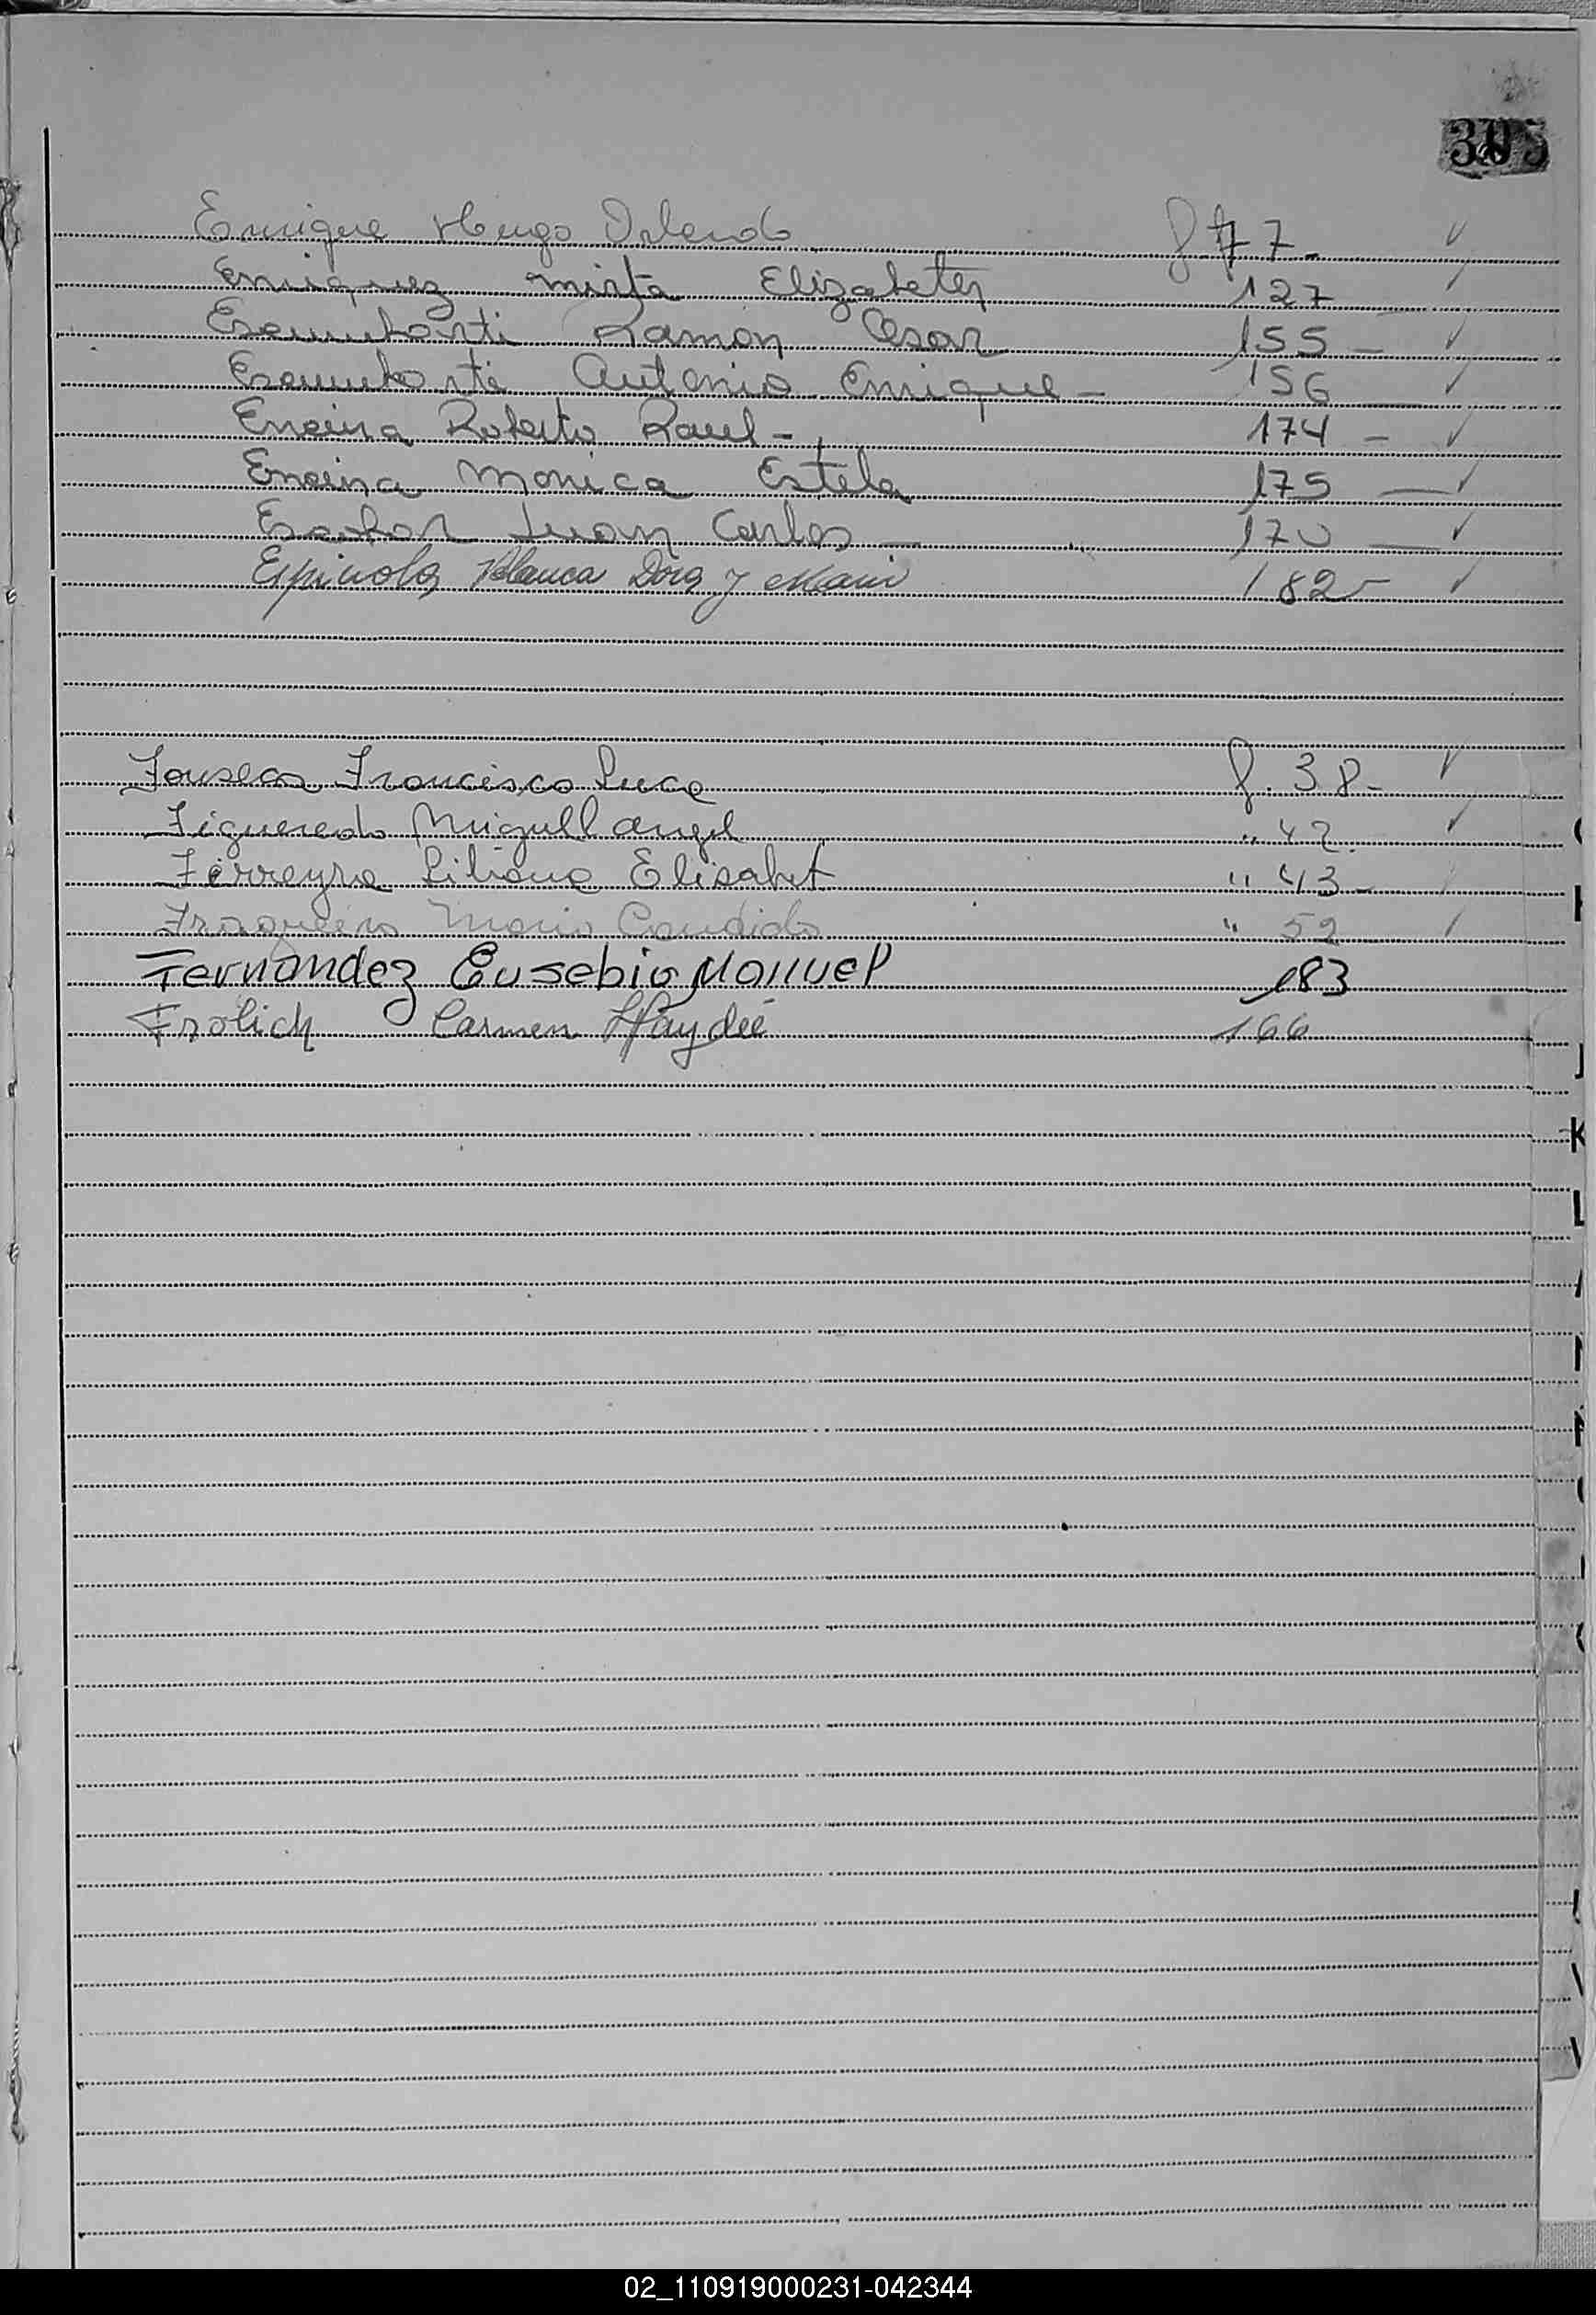 Enrique Hugo Orlando f 77- ✓
Enriquez mirta Elizabeter 127 ✓
Ramon Cesar 155 - ✓
Antonio Enrique - 156 ✓
Encina Roberto Raul - 174 - ✓
Encina Monica Estela 175 - ✓
Escobar Juan Carlos - 170 - ✓
Espinola Blanca Dora y Mario 182- ✓
Fonseca Francisco Luca f. 38- ✓
Figueredo Miguell angel " 42 ✓
Ferreyra Liliana Elisabet " 43- ✓
Mario Candido " 52 ✓
Fernandez Eusebio Manuel 183
Frolich Carmen Haydée 166
J
K
L
02_110919000231-042344